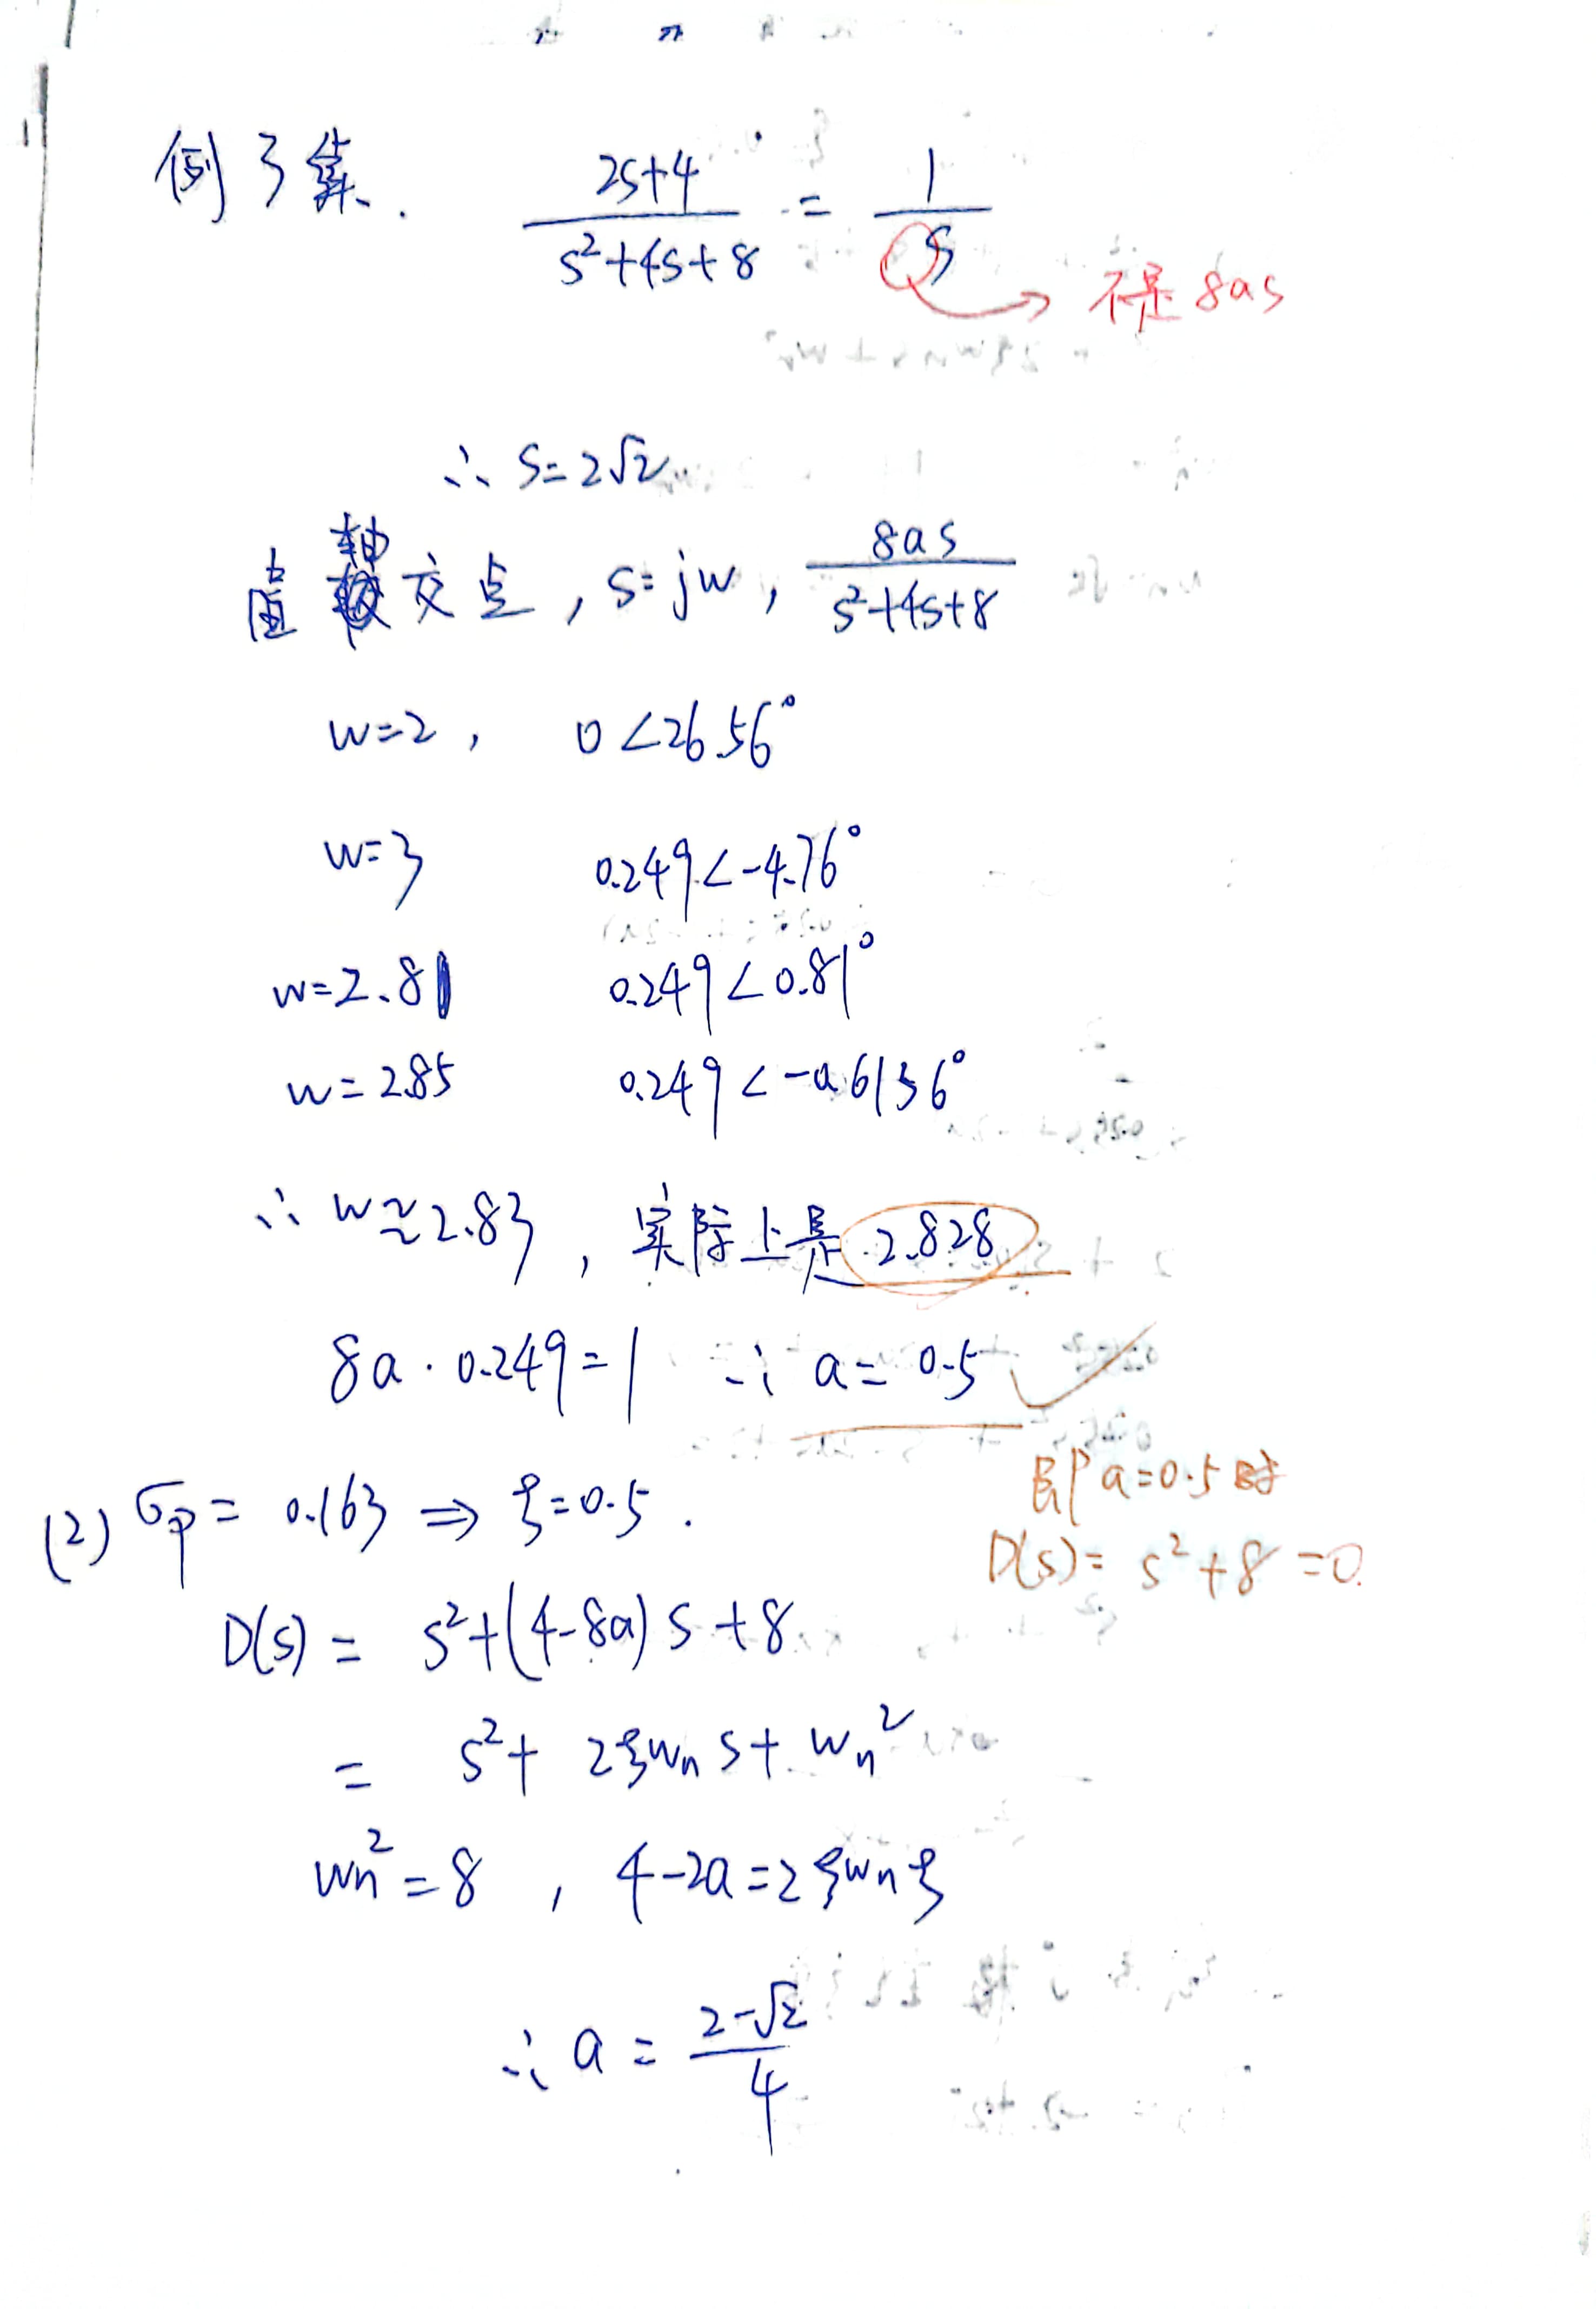 例3集. (2s+4)/(s²+4s+8) = 1/s
不是 8as
∴ s=2√2
虚轴交点, s=jw, 8as/(s²+4s+8)
w=2, 0∠26.56°
w=3 0.249∠-4.76°
w=2.81 0.249∠0.81°
w=2.85 0.249∠-0.6136°
∴ w≈2.83, 实际上是 2.828
8a·0.249=1 ∴ a=0.5
即 a=0.5 时
D(s)= s²+8=0.
(2) σp = 0.163 ⇒ ξ=0.5.
D(s) = s²+(4-8a)s+8
= s²+2ξwn s+wn²
wn²=8, 4-2a=2ξwnξ
∴ a = (2-√2)/4